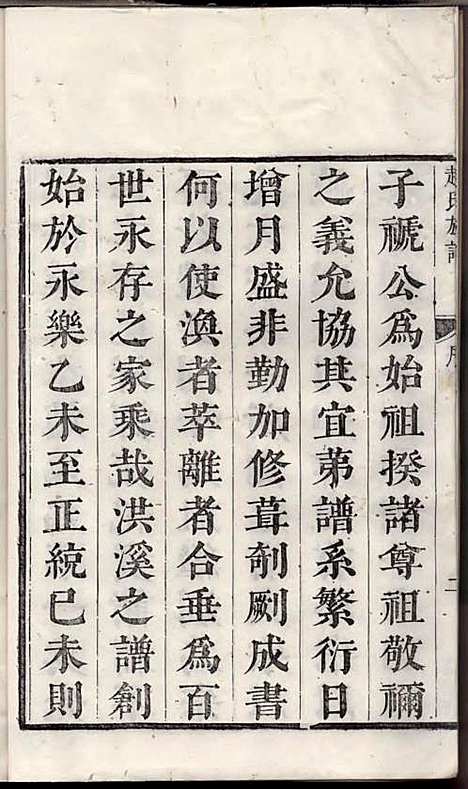 趙氏族譜
序
二
子禠公爲始祖揆諸尊祖敬禰
之義允協其宜苐譜系繁衍日
增月盛非勤加修葺剞劂成書
何以使渙者萃離者合垂爲百
世永存之家乘哉洪溪之譜創
始於永樂乙未至正統己未則